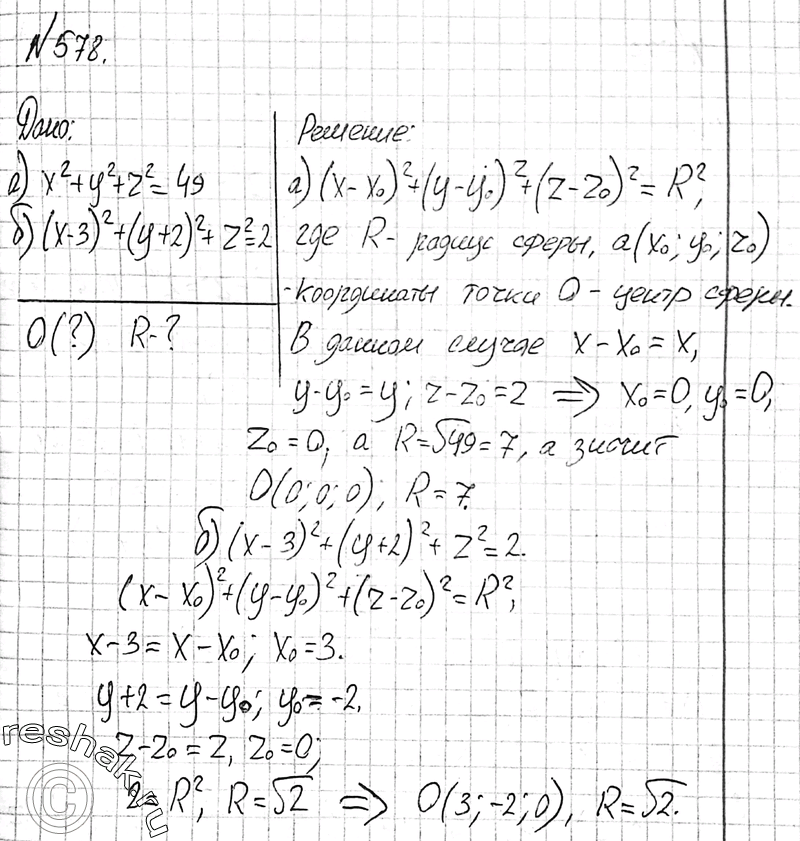 N578.
Дано:
а) x²+y²+z²=49
б) (x-3)²+(y+2)²+z²=2
O(?) R-?
Решение:
а) (x-x₀)²+(y-y₀)²+(z-z₀)²=R²,
где R- радиус сферы, а(x₀; y₀; z₀)
-координаты точки O - центр сферы.
В данном случае x-x₀=x,
y-y₀=y; z-z₀=z ⇒ x₀=0, y₀=0,
z₀=0, а R=√49=7, а значит
O(0; 0; 0), R=7.
б) (x-3)²+(y+2)²+z²=2.
(x-x₀)²+(y-y₀)²+(z-z₀)²=R²;
x-3=x-x₀; x₀=3.
y+2=y-y₀; y₀=-2.
z-z₀=z, z₀=0;
2=R², R=√2 ⇒ O(3; -2; 0), R=√2.
reshak.ru
©